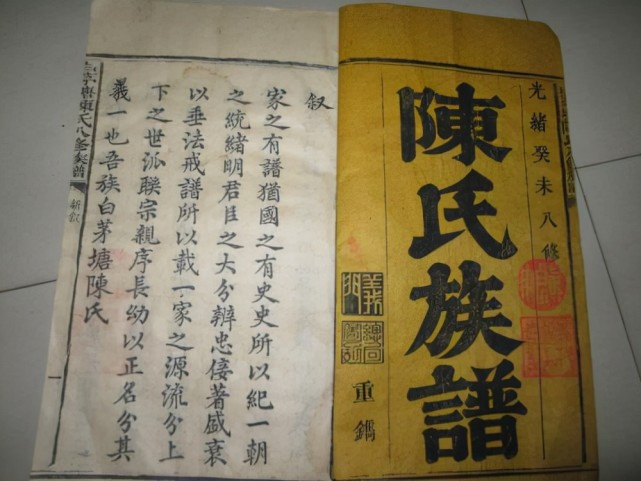 光緒癸未八修
陳氏族譜
重鐫
叙
家之有譜猶國之有史史所以紀一朝
之統緒明君臣之大分辨忠佞著盛衰
以垂法戒譜所以載一家之源流分上
下之世派聯宗親序長幼以正名分其
義一也吾族白茅塘陳氏
陳氏八修族譜
新叙
一